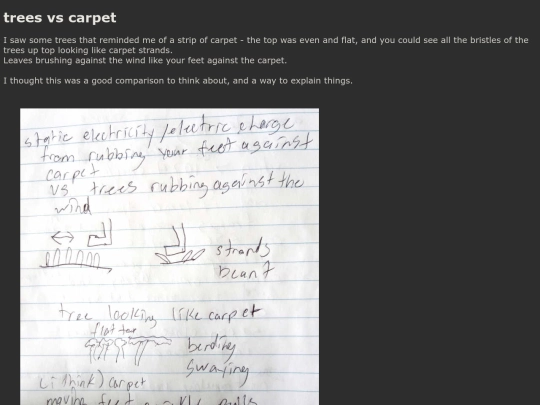 trees vs carpet
I saw some trees that reminded me of a strip of carpet - the top was even and flat, and you could see all the bristles of the
trees up top looking like carpet strands.
Leaves brushing against the wind like your feet against the carpet.
I thought this was a good comparison to think about, and a way to explain things.
static electricity/electric charge
from rubbing your feet against
carpet
vs trees rubbing against the
wind
strands
tree looking like carpet
flat top
bending
swaying
(i think) carpet
moving feet